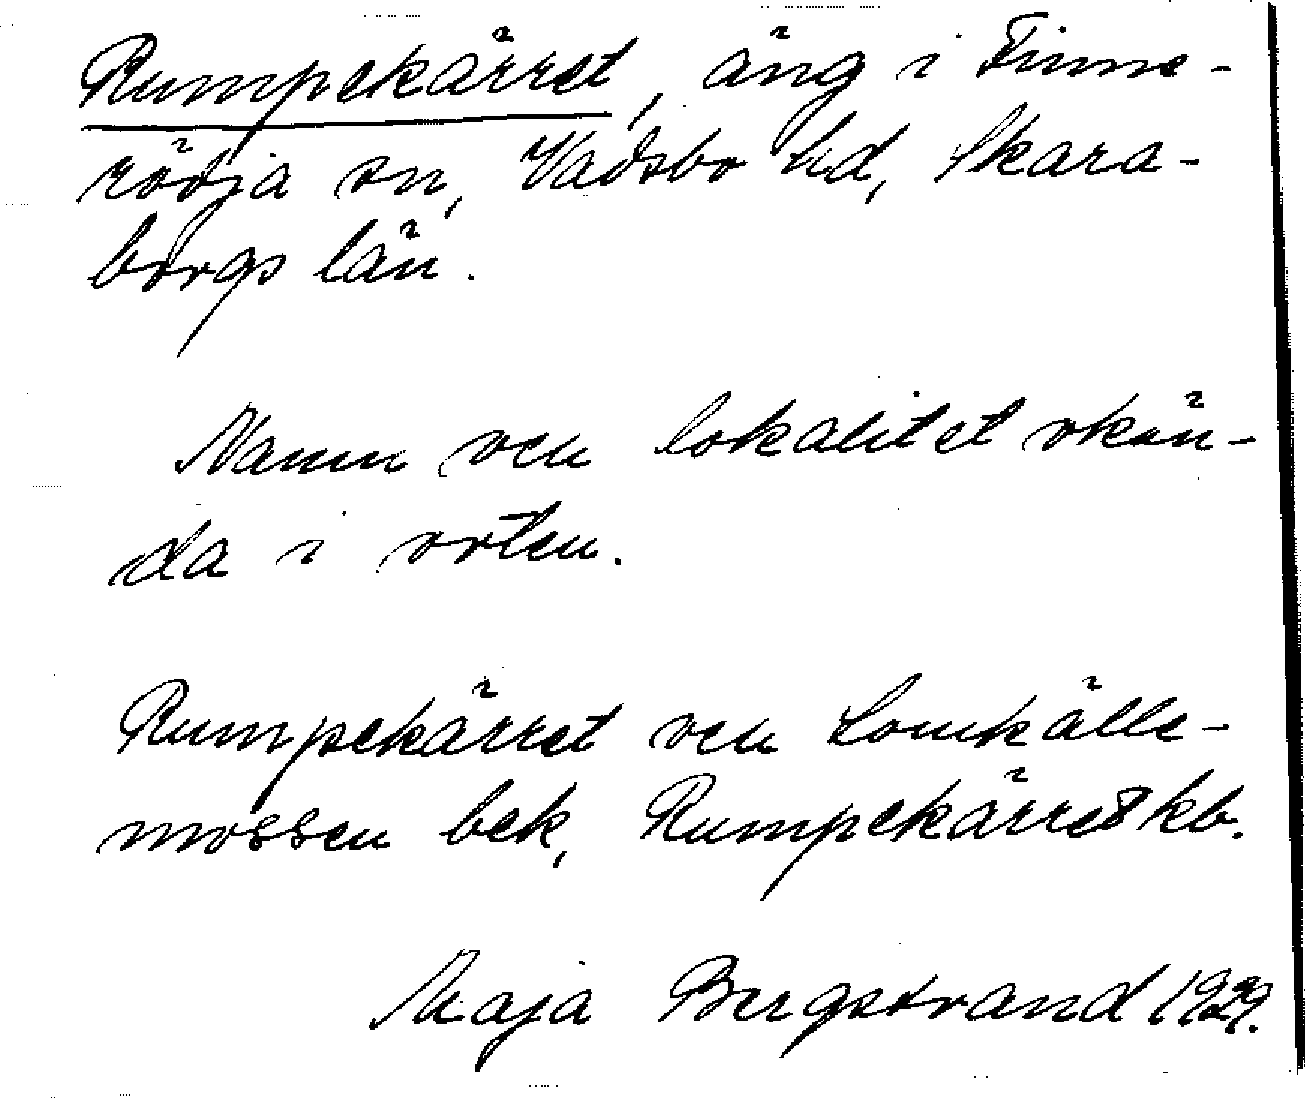 Rumpekärret, äng i Finne-
rödja sn, Vadsbo hd, Skara-
borgs län.
Namn och lokalitet okän-
da i orten.
Rumpekärret och Lomkälle-
mossen bek, Rumpekärret kb.
Maja Bergstrand 1929.